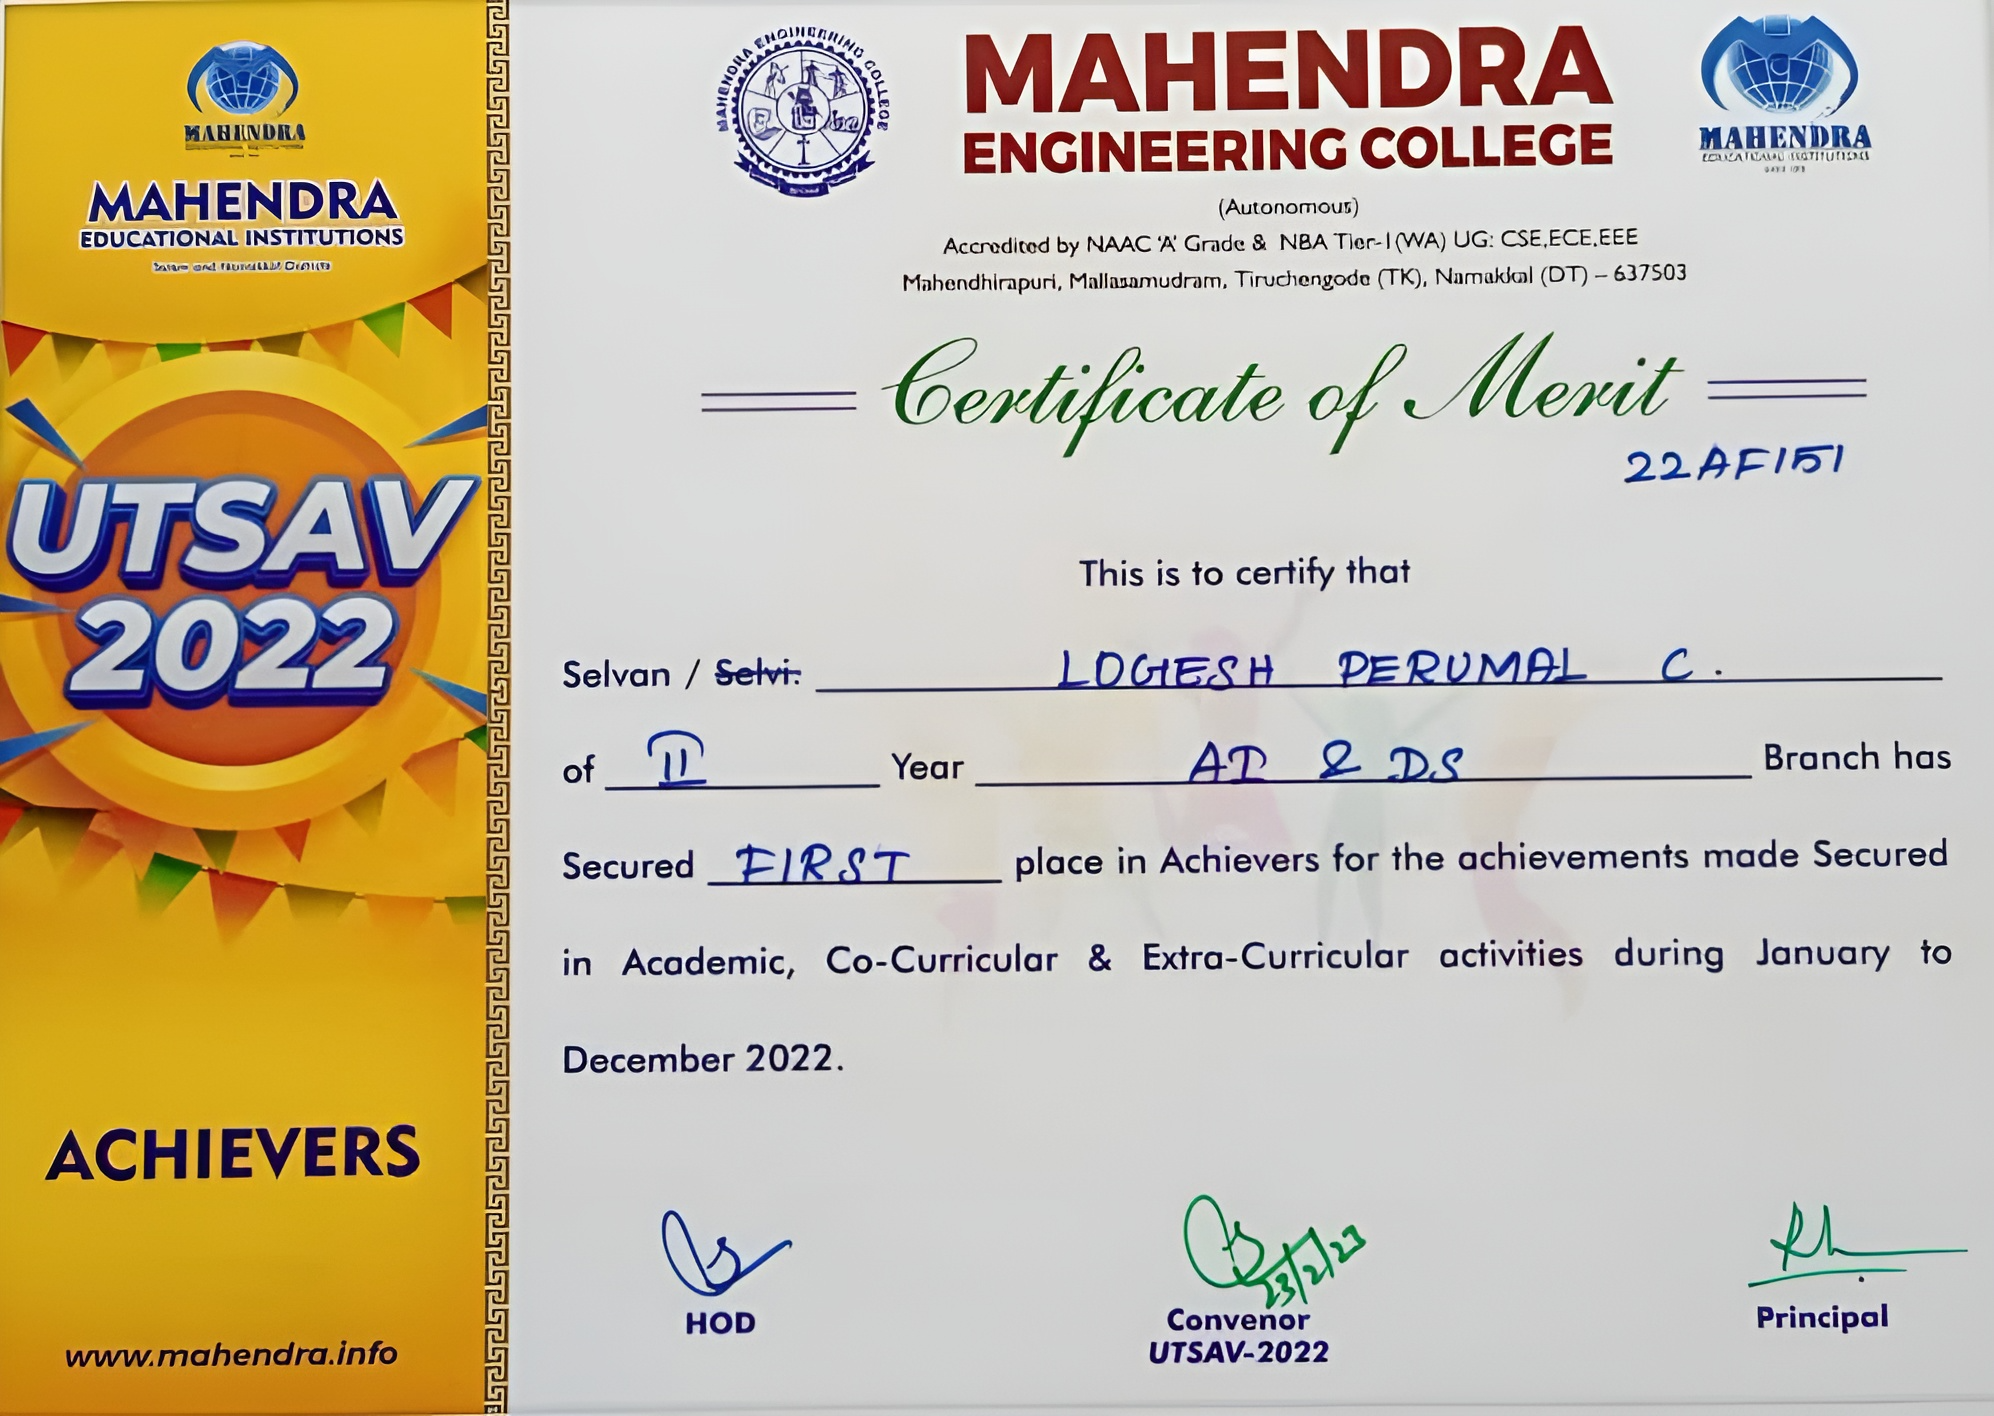 MAHENDRA
MAHENDRA
EDUCATIONAL INSTITUTIONS
UTSAV
2022
ACHIEVERS
www.mahendra.info
MAHENDRA ENGINEERING COLLEGE
MAHENDRA
ENGINEERING COLLEGE
MAHENDRA
EDUCATIONAL INSTITUTIONS
(Autonomous)
Accredited by NAAC 'A' Grade & NBA Tier-1(WA) UG: CSE,ECE,EEE
Mahendhirapuri, Mallasamudram, Tiruchengode (TK), Namakkal (DT) – 637503
Certificate of Merit
22AF151
This is to certify that
Selvan / Selvi. LOGESH PERUMAL C.
of II Year AI & DS Branch has
Secured FIRST place in Achievers for the achievements made Secured
in Academic, Co-Curricular & Extra-Curricular activities during January to
December 2022.
23/2/23
HOD
Convenor
UTSAV-2022
Principal